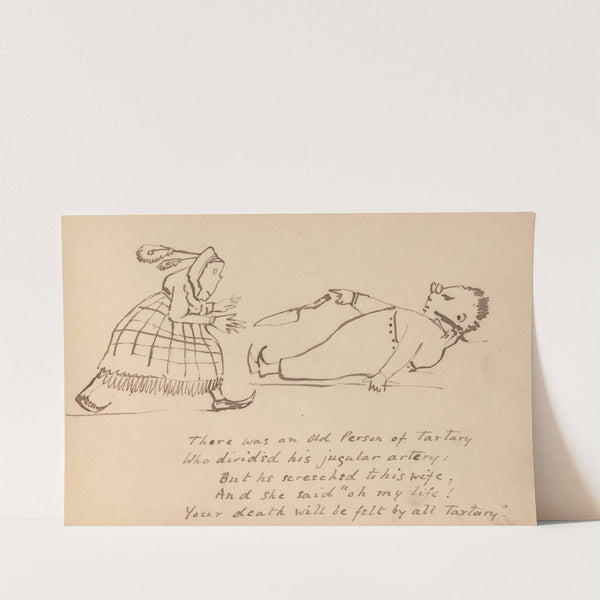 There was an Old Person of Tartary
Who divided his jugular artery:
But he screeched to his wife,
And she said "oh my life!
Your death will be felt by all Tartary"